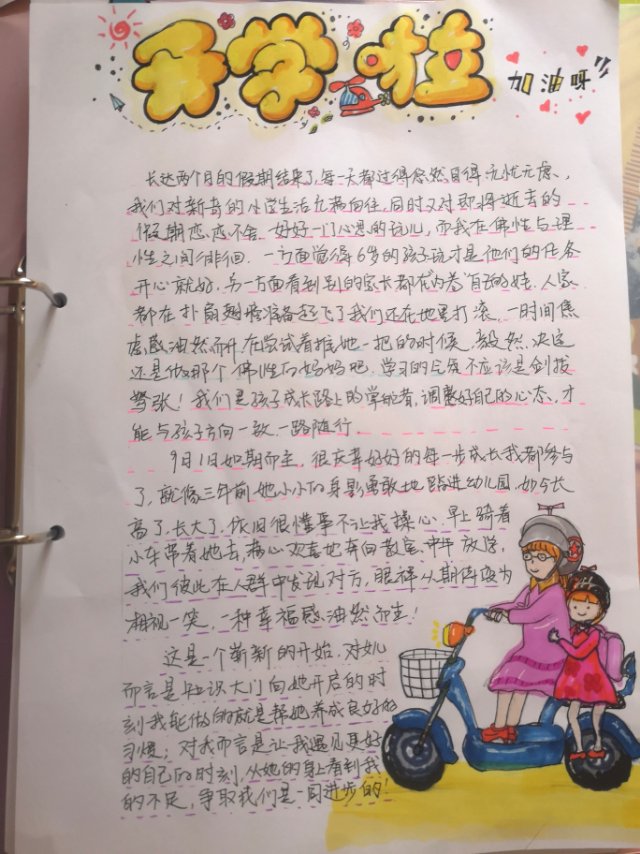 开学啦
加油呀!!
长达两个月的假期结束了,每一天都过得悠然自得无忧无虑、
我们对新奇的小学生活充满向往,同时又对即将逝去的
假期恋恋不舍.好好一门心思的玩儿,而我在佛性与理
性之间徘徊.一方面觉得6岁的孩子玩才是他们的任务
开心就好.另一方面看到别的家长都在内卷自己的娃.人家
都在扑扇翅膀准备起飞了我们还在地里打滚,一时间焦
虑感油然而升.在尝试着推她一把的时候,毅然决定
还是做那个佛性的妈妈吧.学习的气氛不应该是剑拔
弩张!我们是孩子成长路上的掌舵者,调整好自己的心态、才
能与孩子方向一致.一路随行.
9月1日如期而至.很庆幸好好的每一步成长我都参与
了,就像三年前她小小的身影勇敢地踏进幼儿园.如今长
高了.长大了.依旧很懂事不让我操心.早上骑着
小车带着她去,满心欢喜地奔向教室.中午放学,
我们彼此在人群中发现对方,眼神从期待变为
相视一笑,一种幸福感油然而生!
这是一个崭新的开始.对她
而言是知识大门向她开启的时
刻.我能做的就是帮她养成良好的
习惯;对我而言是让我遇见更好
的自己的时刻,从她的身上看到我
的不足,争取我们是一同进步的!